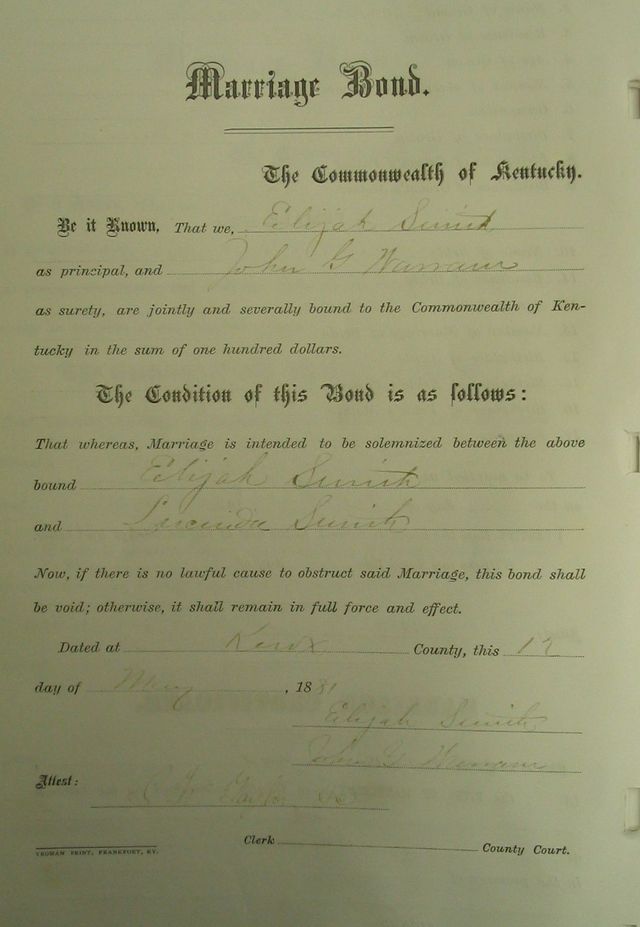 Marriage Bond.
The Commonwealth of Kentucky.
Be it Known, That we, Elijah Smith
as principal, and John G
as surety, are jointly and severally bound to the Commonwealth of Ken-
tucky in the sum of one hundred dollars.
The Condition of this Bond is as follows:
That whereas, Marriage is intended to be solemnized between the above
bound Elijah Smith
and Lucinda Smith
Now, if there is no lawful cause to obstruct said Marriage, this bond shall
be void; otherwise, it shall remain in full force and effect.
Dated at Knox County, this
day of May, 1881
Elijah Smith
John G
Attest:
Clerk County Court.
YEOMAN PRINT, FRANKFORT, KY.